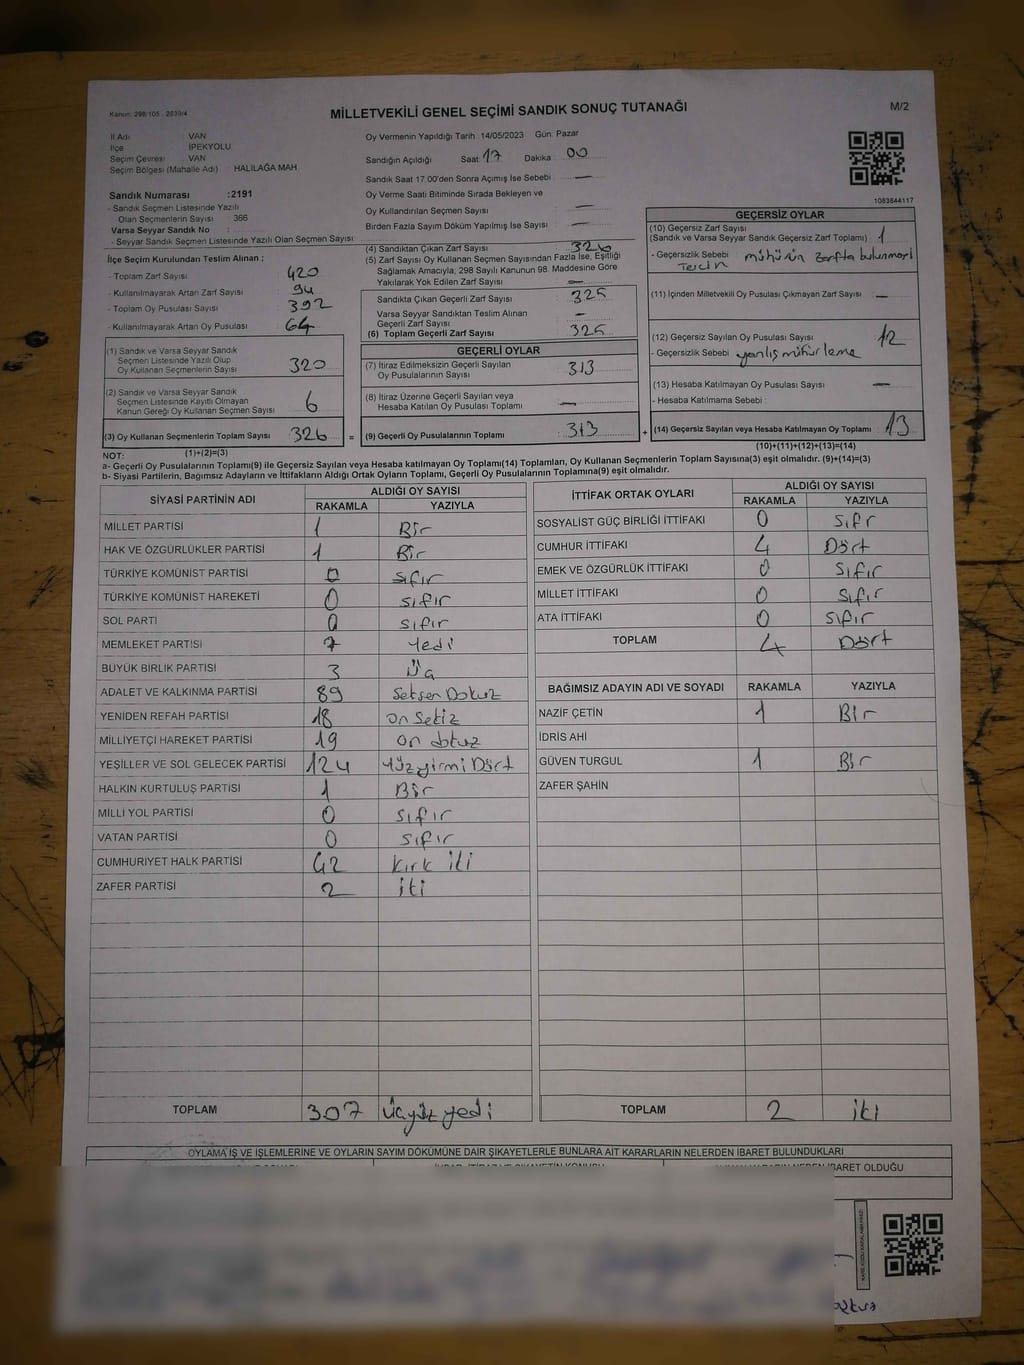 Kanun: 298/105 . 2839/4
MİLLETVEKİLİ GENEL SEÇİMİ SANDIK SONUÇ TUTANAĞI
M/2
İl Adı : VAN
İlçe : İPEKYOLU
Seçim Çevresi : VAN
Seçim Bölgesi (Mahalle Adı) : HALİLAĞA MAH.
Sandık Numarası :2191
- Sandık Seçmen Listesinde Yazılı
Olan Seçmenlerin Sayısı : 366
Varsa Seyyar Sandık No :
- Seyyar Sandık Seçmen Listesinde Yazılı Olan Seçmen Sayısı
Oy Vermenin Yapıldığı Tarih 14/05/2023 Gün: Pazar
Sandığın Açıldığı Saat 17 Dakika 00
Sandık Saat 17.00'den Sonra Açımış İse Sebebi —
Oy Verme Saati Bitiminde Sırada Bekleyen ve
Oy Kullandırılan Seçmen Sayısı —
Birden Fazla Sayım Döküm Yapılmış İse Sayısı —
1083844117
İlçe Seçim Kurulundan Teslim Alınan ;
- Toplam Zarf Sayısı 420
- Kullanılmayarak Artan Zarf Sayısı 94
- Toplam Oy Pusulası Sayısı 392
- Kullanılmayarak Artan Oy Pusulası 64
(1) Sandık ve Varsa Seyyar Sandık
Seçmen Listesinde Yazılı Olup
Oy Kullanan Seçmenlerin Sayısı 320
(2) Sandık ve Varsa Seyyar Sandık
Seçmen Listesinde Kayıtlı Olmayan
Kanun Gereği Oy Kullanan Seçmen Sayısı 6
(3) Oy Kullanan Seçmenlerin Toplam Sayısı 326
(1)+(2)=(3)
(4) Sandıktan Çıkan Zarf Sayısı 326
(5) Zarf Sayısı Oy Kullanan Seçmen Sayısından Fazla İse, Eşitliği
Sağlamak Amacıyla, 298 Sayılı Kanunun 98. Maddesine Göre
Yakılarak Yok Edilen Zarf Sayısı —
Sandıkta Çıkan Geçerli Zarf Sayısı 325
Varsa Seyyar Sandıktan Teslim Alınan
Geçerli Zarf Sayısı —
(6) Toplam Geçerli Zarf Sayısı 325
GEÇERLİ OYLAR
(7) İtiraz Edilmeksizin Geçerli Sayılan
Oy Pusulalarının Sayısı 313
(8) İtiraz Üzerine Geçerli Sayılan veya
Hesaba Katılan Oy Pusulası Toplamı —
= (9) Geçerli Oy Pusulalarının Toplamı 313
GEÇERSİZ OYLAR
(10) Geçersiz Zarf Sayısı
(Sandık ve Varsa Seyyar Sandık Geçersiz Zarf Toplamı) 1
- Geçersizlik Sebebi : mühürün zarfta bulunması
Tercih
(11) İçinden Milletvekili Oy Pusulası Çıkmayan Zarf Sayısı —
(12) Geçersiz Sayılan Oy Pusulası Sayısı 12
- Geçersizlik Sebebi : yanlış mühürleme
(13) Hesaba Katılmayan Oy Pusulası Sayısı —
- Hesaba Katılmama Sebebi :
+ (14) Geçersiz Sayılan veya Hesaba Katılmayan Oy Toplamı 13
(10)+(11)+(12)+(13)=(14)
NOT:
a- Geçerli Oy Pusulalarının Toplamı(9) ile Geçersiz Sayılan veya Hesaba katılmayan Oy Toplamı(14) Toplamları, Oy Kullanan Seçmenlerin Toplam Sayısına(3) eşit olmalıdır. (9)+(14)=(3)
b- Siyasi Partilerin, Bağımsız Adayların ve İttifakların Aldığı Ortak Oyların Toplamı, Geçerli Oy Pusulalarının Toplamına(9) eşit olmalıdır.
SİYASİ PARTİNİN ADI ALDIĞI OY SAYISI
RAKAMLA YAZIYLA
MİLLET PARTİSİ 1 Bir
HAK VE ÖZGÜRLÜKLER PARTİSİ 1 Bir
TÜRKİYE KOMÜNİST PARTİSİ 0 sıfır
TÜRKİYE KOMÜNİST HAREKETİ 0 sıfır
SOL PARTİ 0 sıfır
MEMLEKET PARTİSİ 7 Yedi
BÜYÜK BİRLİK PARTİSİ 3 Üç
ADALET VE KALKINMA PARTİSİ 89 Seksen Dokuz
YENİDEN REFAH PARTİSİ 18 on Sekiz
MİLLİYETÇİ HAREKET PARTİSİ 19 on dokuz
YEŞİLLER VE SOL GELECEK PARTİSİ 124 Yüzyirmi Dört
HALKIN KURTULUŞ PARTİSİ 1 Bir
MİLLİ YOL PARTİSİ 0 sıfır
VATAN PARTİSİ 0 sıfır
CUMHURİYET HALK PARTİSİ 42 kırk iki
ZAFER PARTİSİ 2 iki
TOPLAM 307 Üçyüz yedi
İTTİFAK ORTAK OYLARI ALDIĞI OY SAYISI
RAKAMLA YAZIYLA
SOSYALİST GÜÇ BİRLİĞİ İTTİFAKI 0 sıfr
CUMHUR İTTİFAKI 4 Dört
EMEK VE ÖZGÜRLÜK İTTİFAKI 0 sıfır
MİLLET İTTİFAKI 0 sıfır
ATA İTTİFAKI 0 sıfır
TOPLAM 4 Dört
BAĞIMSIZ ADAYIN ADI VE SOYADI RAKAMLA YAZIYLA
NAZİF ÇETİN 1 Bir
İDRİS AHİ
GÜVEN TURGUL 1 Bir
ZAFER ŞAHİN
TOPLAM 2 iki
OYLAMA İŞ VE İŞLEMLERİNE VE OYLARIN SAYIM DÖKÜMÜNE DAİR ŞİKAYETLERLE BUNLARA AİT KARARLARIN NELERDEN İBARET BULUNDUKLARI
İBARET OLDUĞU